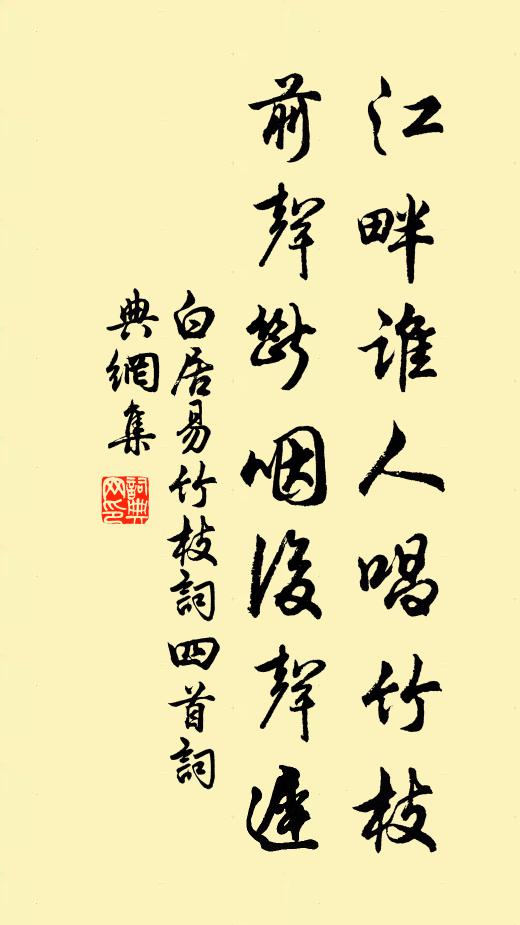 江畔誰人唱竹枝
前聲斷咽後聲遲
白居易竹枝詞四首詞
典網集
詞典
网印